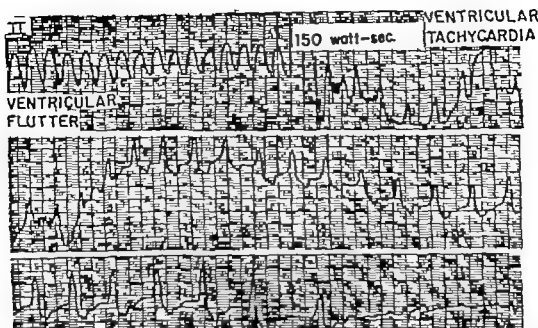 II
150 watt-sec.
VENTRICULAR
TACHYCARDIA
VENTRICULAR
FLUTTER